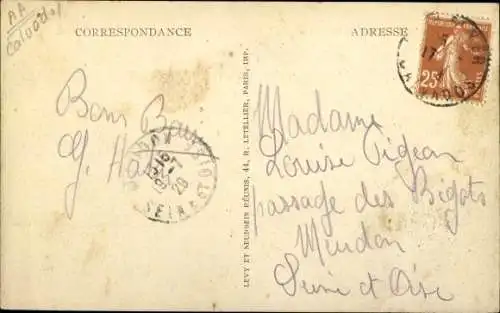 AA
Calvados
CORRESPONDANCE
ADRESSE
25
Bons Baisers
Madame
Louise Pigean
passage des Bigots
Meudon
Seine et Oise
SEINE ET
28
LEVY ET NEURDEIN RÉUNIS, 44, R. LETELLIER, PARIS, IMP.